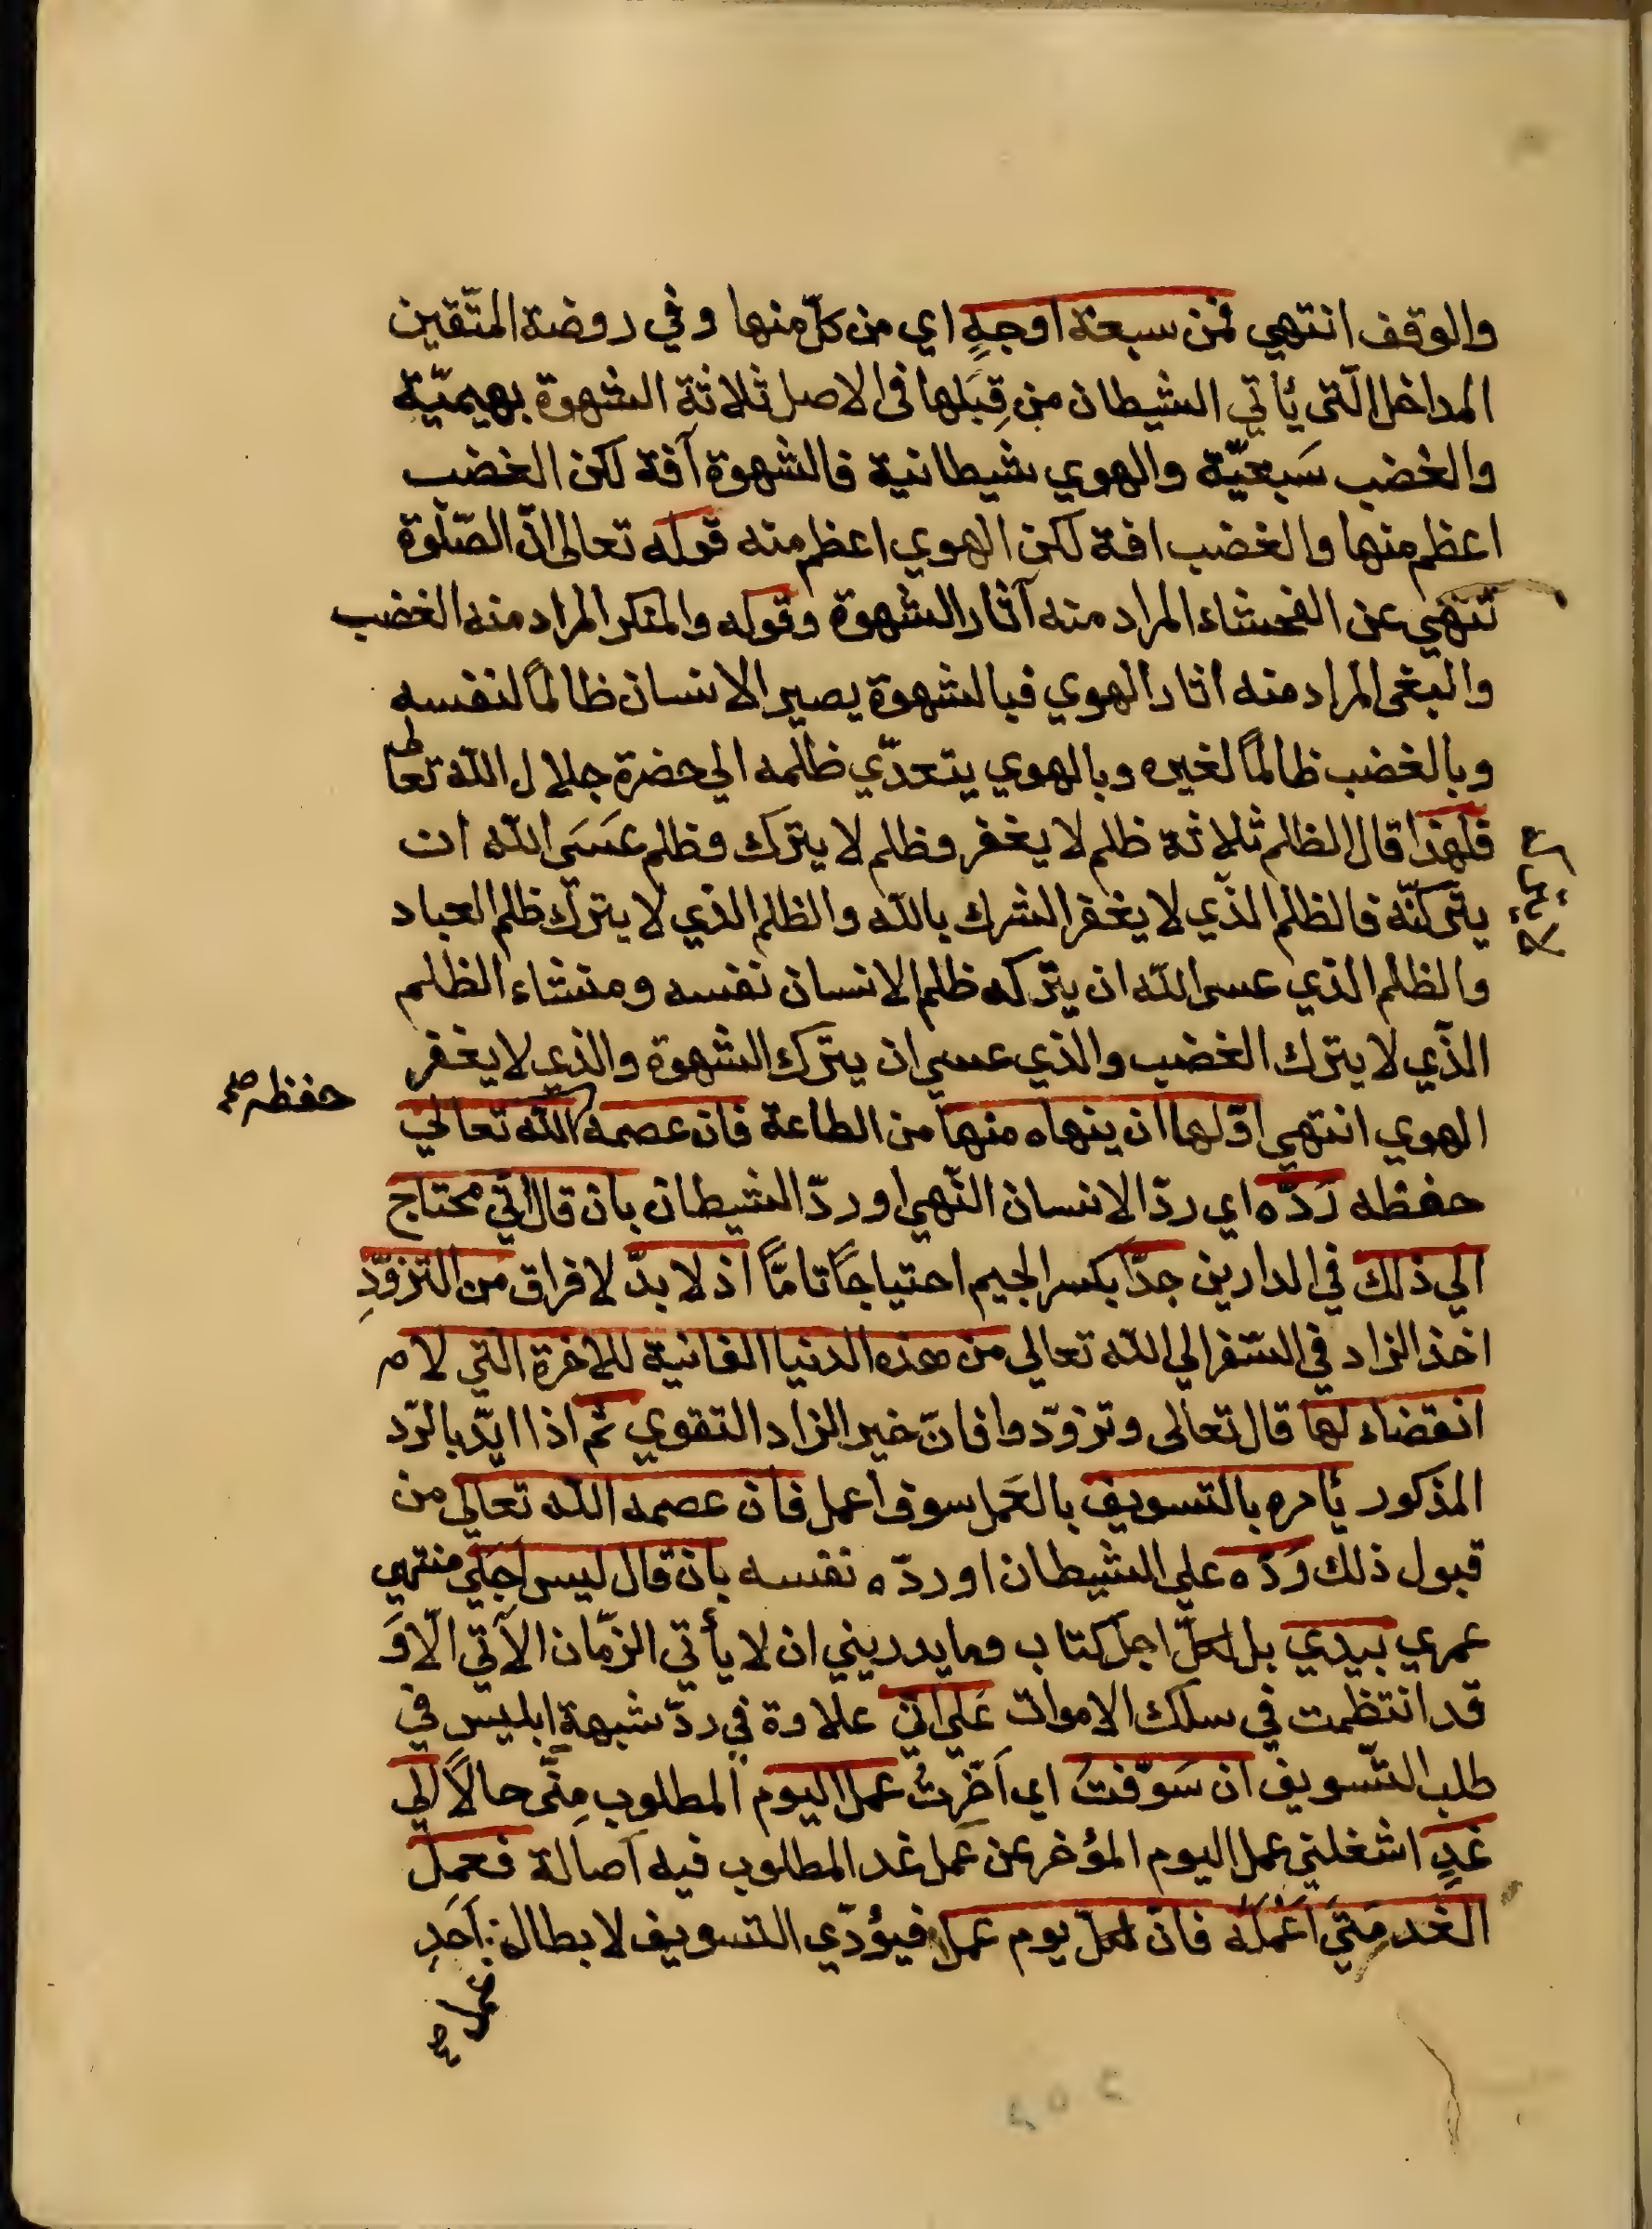 والوقف انتهي فمن سبعة اوجهٍ اي من كلّ منها وفي روضة المتّقين
المداخل الّتى يأتي الشيطان من قِبَلها فى الاصل ثلاثة الشهوة بهيميّة
والغضب سَبعيّة والهوي شيطانية فالشهوة آفة لكن الغضب
اعظم منها والغضب افة لكن الهوي اعظم منه قوله تعالى انّ الصّلوة
تنهي عن الفحشاء المراد منه آثار الشهوة وقوله والمنكر المراد منه الغضب
والبغى المراد منه اثار الهوي فبالشهوة يصير الانسان ظالمًا لنفسه
وبالغضب ظالمًا لغيره وبالهوي يتعدّي ظلمه الي حضرة جلال اللّه تعالى
فلهذا قال الظلم ثلاثة ظلم لا يغفر وظلم لا يترك وظلم عَسَى اللّه ان
يتركنّه فالظلم الذّي لا يغفر الشرك باللّه والظلم الذي لا يترك ظلم العباد
والظلم الذي عسى اللّه ان يتركه ظلم الانسان نفسه ومنشاء الظلم
الذّي لا يترك الغضب والذي عسي ان يترك الشهوة والذي لا يغفر
الهوي انتهي اوّلها ان ينهاه منها من الطاعة فان عصمه اللّه تعالي
حفظه صح
حفظه رَدّه اي ردّ الانسان النّهي او ردّ الشيطان بان قال انّي محتاج
الي ذلك في الدارين جدّا بكسر الجيم احتياجًا تامًّا اذ لا بدّ لا فراق من التزوّدِ
اخذ الزاد في السّفر الي اللّه تعالي من هذه الدنيا الفانية للاخرة التي لا م
انقضاء لها قال تعالى وتزوّدوا فانّ خير الزاد التقوي ثم اذا ايّد بالرّد
المذكور يأمره بالتسويف بالعَمل سوف اعمل فان عصمه اللّه تعالي من
قبول ذلك رَدّه علي الشيطان او ردّه نفسه بان قال ليس اجَلي منتهي
عمري بيدي بل لكلّ اجل كتاب وما يدريني ان لا يأتي الزّمان الآتي الّا وَ
قد انتظمت في سلك الاموات عَلي انّي علاوة في ردّ شبهة ابليس في
طلب التّسويف ان سَوّفتُ اي اَخّرتُ عمل اليوم المطلوب مِنّى حالًا الي
غدٍ اشغلني عمل اليوم المؤخر عن عَمل غد المطلوب فيه اَصالة فعمل
الغد مَتي اَعْمَلُه فانّ لكلّ يوم عملا فيؤدّي التسويف لابطال اَحَدِ